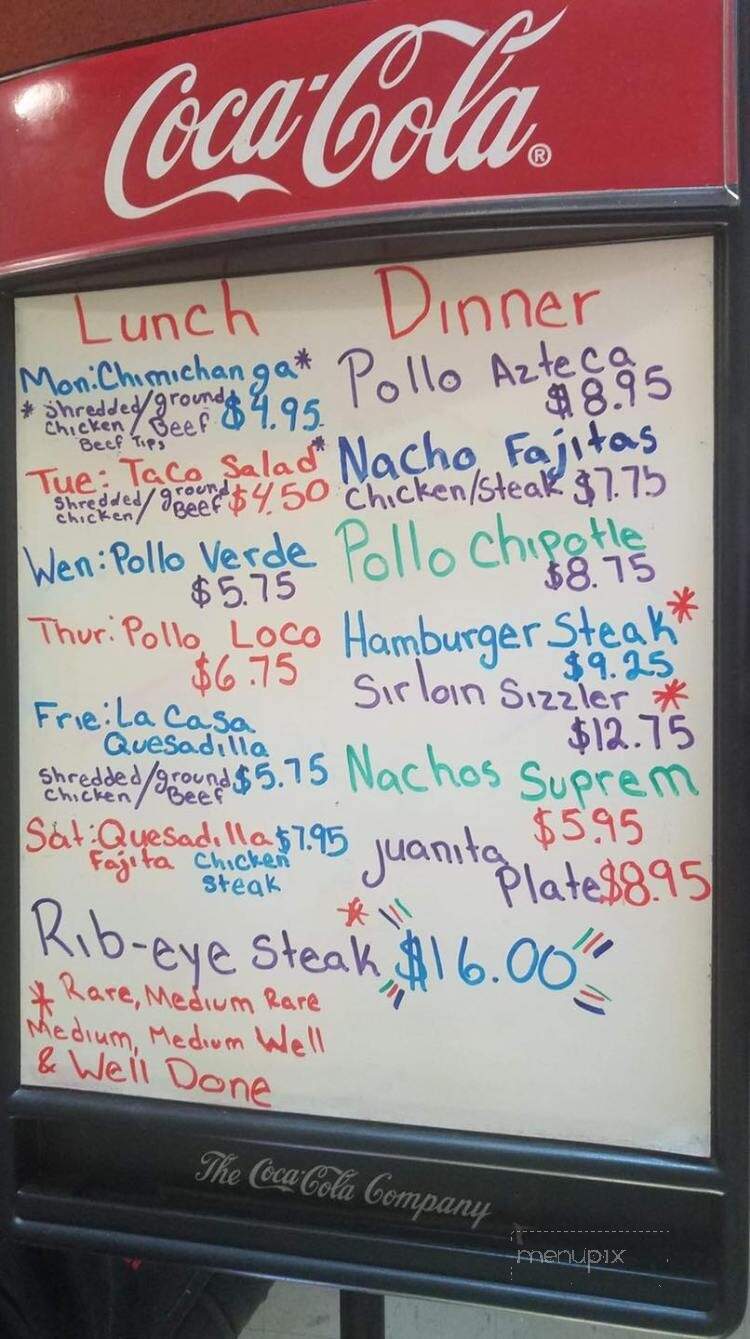 Coca-Cola®
Lunch
Mon: Chimichanga*
* Shredded/ground
Chicken/Beef $4.95
Beef Tips
Tue: Taco Salad*
Shredded/ground
chicken/Beef $4.50
Wen: Pollo Verde
$5.75
Thur: Pollo Loco
$6.75
Frie: La Casa
Quesadilla
Shredded/ground $5.75
Chicken/Beef
Sat: Quesadilla $7.95
Fajita Chicken
Steak
Dinner
Pollo Azteca
$8.95
Nacho Fajitas
Chicken/Steak $7.75
Pollo Chipotle
$8.75
Hamburger Steak*
$9.25
Sirloin Sizzler *
$12.75
Nachos Suprem
$5.95
juanita
Plate $8.95
Rib-eye Steak * $16.00
* Rare, Medium Rare
Medium, Medium Well
& Well Done
The Coca-Cola Company
menupix